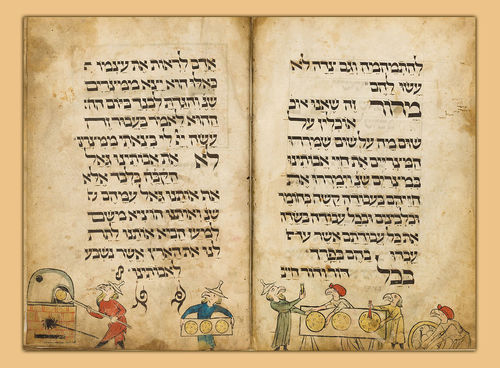 להתמהמה וגם צדה לא
עשו להם
מרור זה שאנו אוכ
אוכלין על
שום מה על שום שמררו
המצרים את חיי אבותינו
במצרים שנ' וימררו את
חייהם בעבודה קשה בחומר
ובלבנים ובכל עבודה בשדה
את כל עבודתם אשר
עבדו בהם בפרך
בכל דור ודור חייב
אדם לראות את עצמו
כאלו הוא יצא ממצרים
שנ' והגדת לבנך ביום הה
ההוא לאמר בעבור זה
עשה לי בצאתי ממצרים
לא את אבותינו גאל
הקבה בלבד אלא
אף אותנו גאל עמהם
שנ' ואותנו הוציא משם
למען הביא אותנו לתת
לנו את הארץ אשר נשבע
לאבותינו